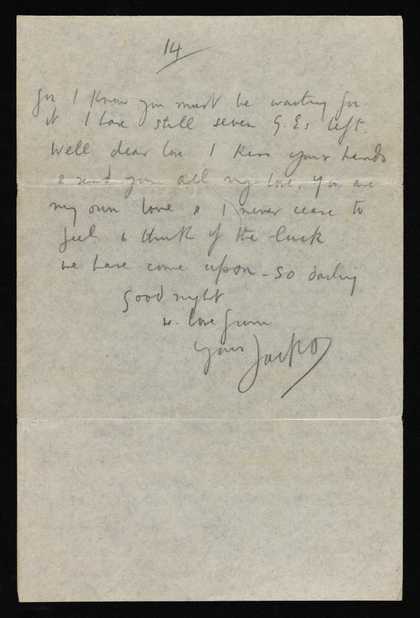 14
for I know you must be waiting for
it I have still seven G.Es left.
Well dear love I kiss your hands
& send you all my love. You are
my own love & I never cease to
feel & think of the luck
we have come upon - So darling
Good night
w. love from
Yours Jacko